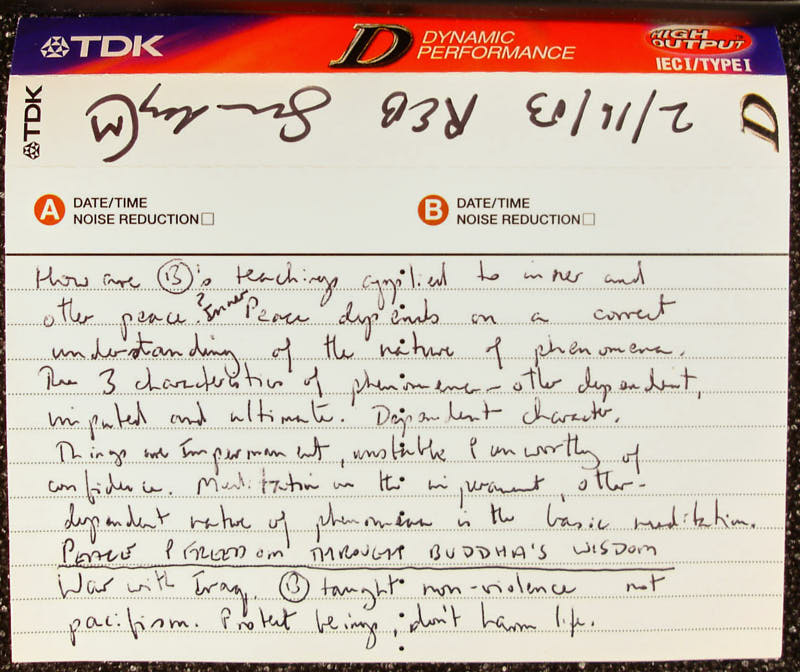 TDK D DYNAMIC PERFORMANCE HIGH OUTPUT IEC I/TYPE I
TDK D
2/16/03 REB Sunday M
A DATE/TIME NOISE REDUCTION B DATE/TIME NOISE REDUCTION
How are B's teachings applied to inner and
other peace? Inner Peace depends on a correct
understanding of the nature of phenomena.
The 3 characteristics of phenomena - other dependent,
imputed and ultimate. Dependent character.
Things are Impermanent, unstable & unworthy of
confidence. Meditation on the impermanent, other-
dependent nature of phenomena is the basic meditation.
PEACE & FREEDOM THROUGH BUDDHA'S WISDOM
War with Iraq. B taught non-violence not
pacifism. Protect beings, don't harm life.